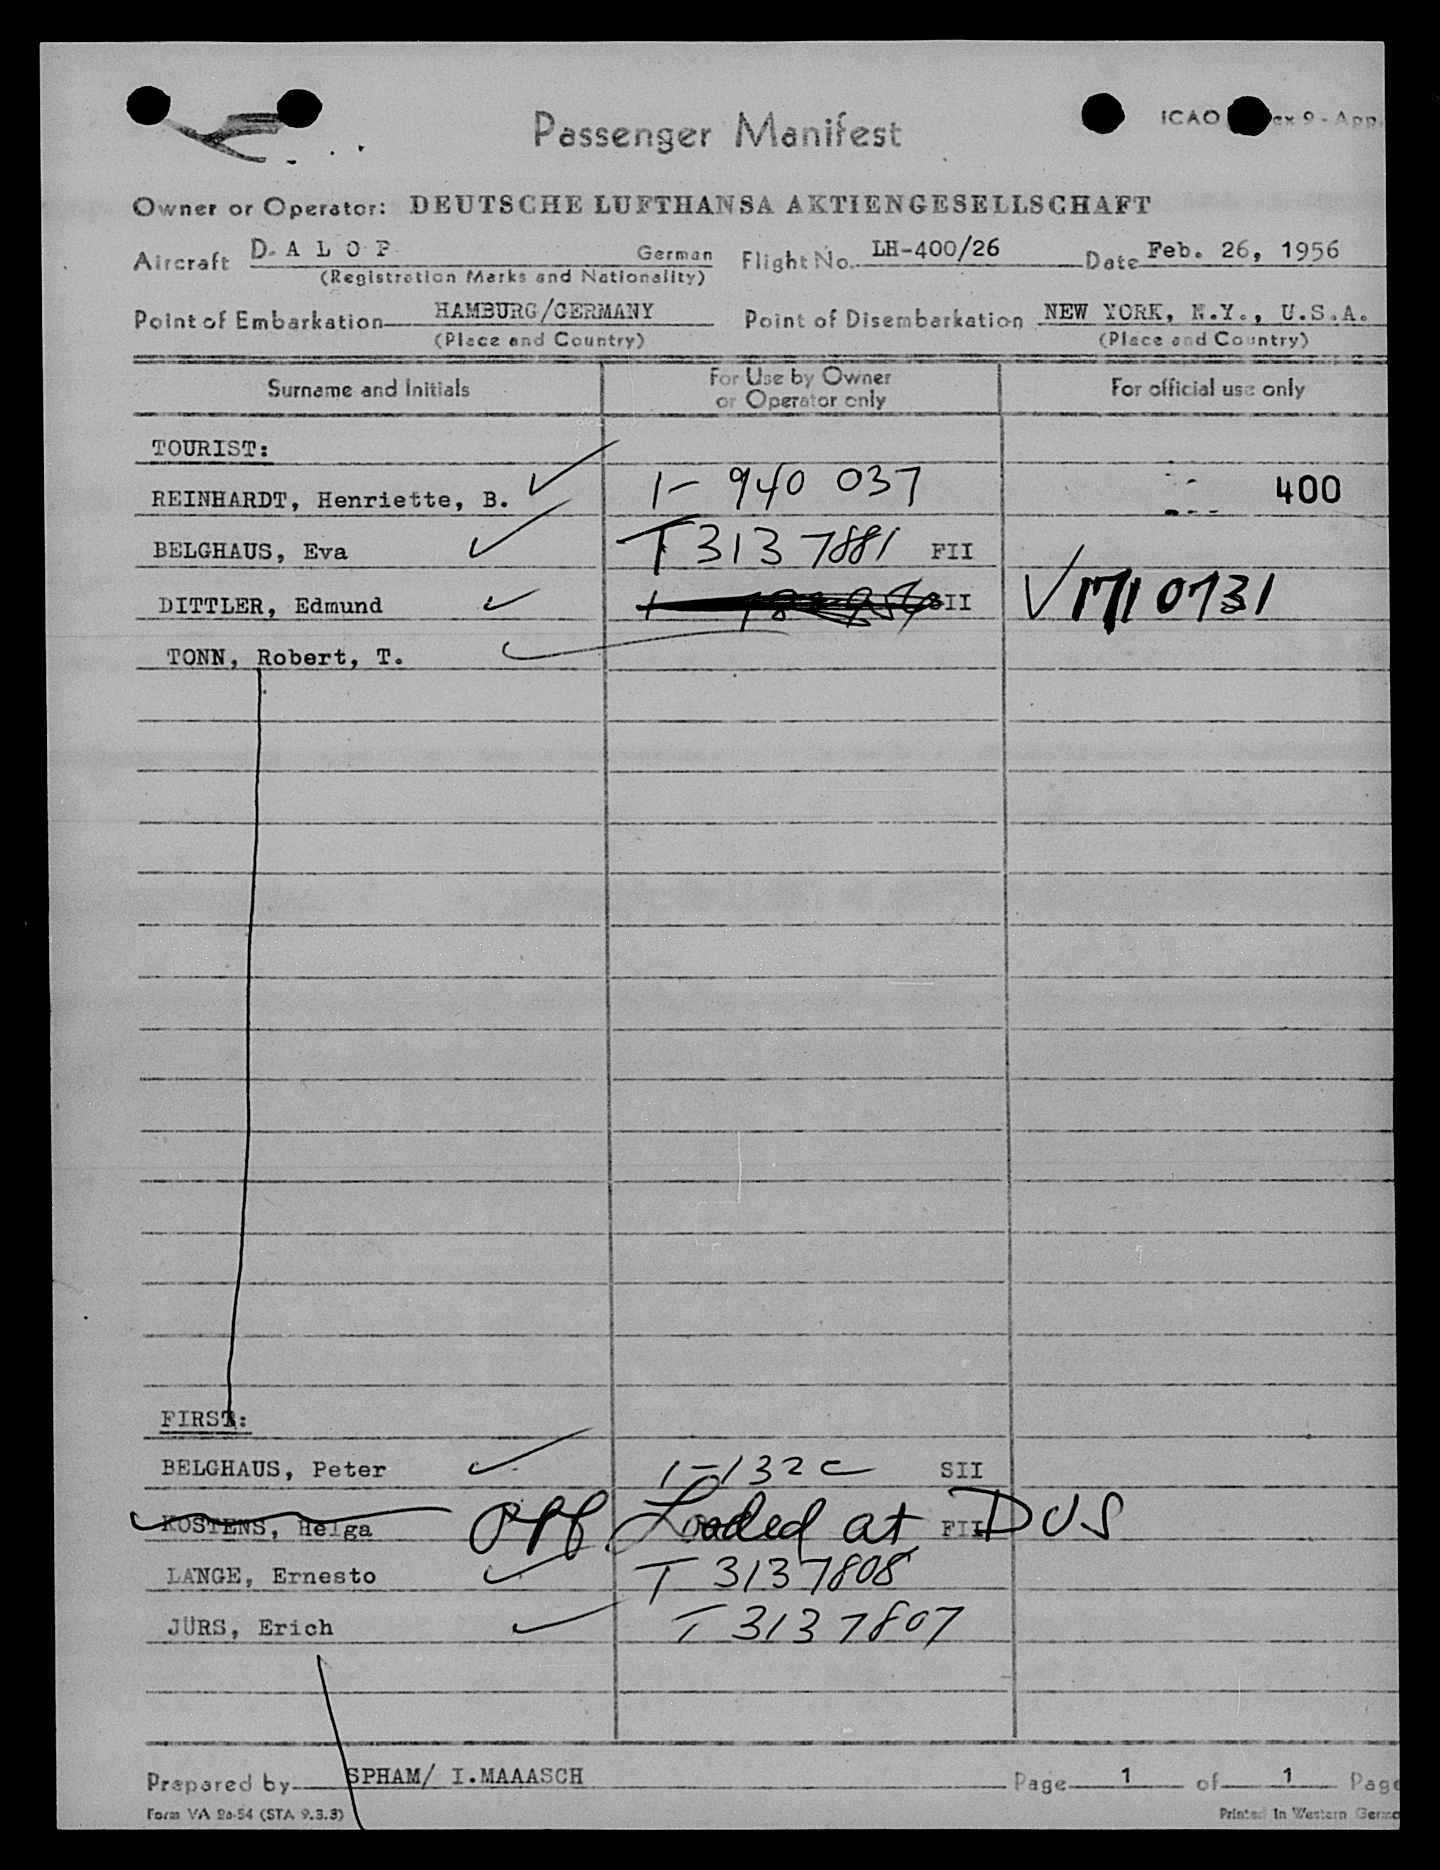 Passenger Manifest
ICAO ex 9 - App.
Owner or Operator: DEUTSCHE LUFTHANSA AKTIENGESELLSCHAFT
Aircraft D-A L O P German Flight No. LH-400/26 Date Feb. 26, 1956
(Registration Marks and Nationality)
Point of Embarkation HAMBURG/GERMANY Point of Disembarkation NEW YORK, N.Y., U.S.A.
(Place and Country) (Place and Country)
Surname and Initials For Use by Owner or Operator only For official use only
TOURIST:
REINHARDT, Henriette, B. 1- 940 037 400
BELGHAUS, Eva T 313 7881 FII
DITTLER, Edmund SII V1710731
TONN, Robert, T.
FIRST:
BELGHAUS, Peter 1-132c SII
KOSTENS, Helga Off Loaded at FII DUS
LANGE, Ernesto T 3137808
JÜRS, Erich T 3137807
Prepared by SPHAM/ I.MAAASCH Page 1 of 1 Page
Form VA 2a-54 (STA 9.3.3) Printed in Western Germa